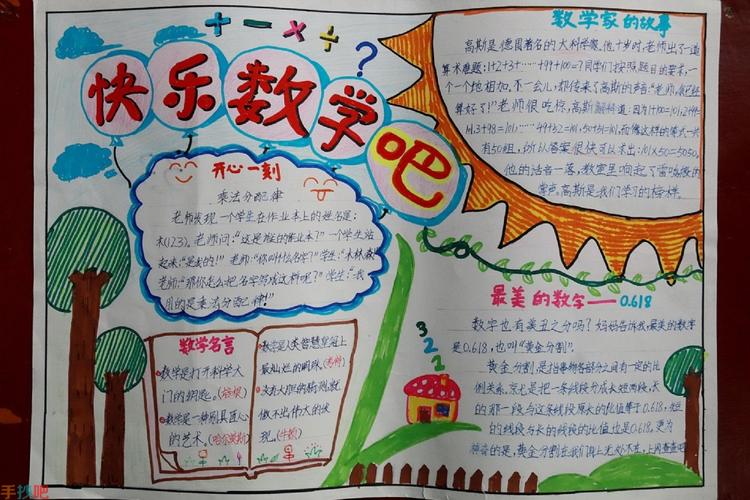 + - × ÷ ?
快乐数学吧
开心一刻
乘法分配律
老师发现一个学生在作业本上的姓名是:
木(1+2+3)。老师问:“这是谁的作业本?”一个学生站
起来:“是我的!”老师:“你叫什么名字?”学生:“木林森”
老师:“那你怎么把名字写成这样呢?”学生:“我
用的是乘法分配律!”
数学名言
数学是打开科学大
门的钥匙。(培根)
数学是一种别具匠心
的艺术。(哈尔莫斯)
数学是人类智慧皇冠上
最灿烂的明珠。(考特)
没有大胆的猜测,就
做不出伟大的发
现。(牛顿)
数学家的故事
高斯是德国著名的大科学家,他十岁时,老师出了道
算术难题:1+2+3+……+99+100=?同学们按照题目的要求,一
个一个地相加。不一会儿,却传来了高斯的声音:“老师,我已经
算好了!”老师很吃惊,高斯解释道:因为1+100=101,2+99=
101,3+98=101……49+52=101,50+51=101,而像这样的等式一共
有50组,所以答案很快可以求出:101×50=5050。
他的话音一落,教室里响起了
掌声。高斯是我们学习的榜样。
最美的数字——0.618
数字也有美丑之分吗?妈妈告诉我,最美的数字
是0.618,也叫“黄金分割”。
黄金分割是指事物各部分之间有一定的比
例关系,就是把一条线段分成长短两段,长
的那一段与这条线段原长的比值等于0.618,
的线段与长的线段的比值也是0.618。更为
神奇的是,黄金分割在我们身上无处不在,
3
2
1
手抄吧